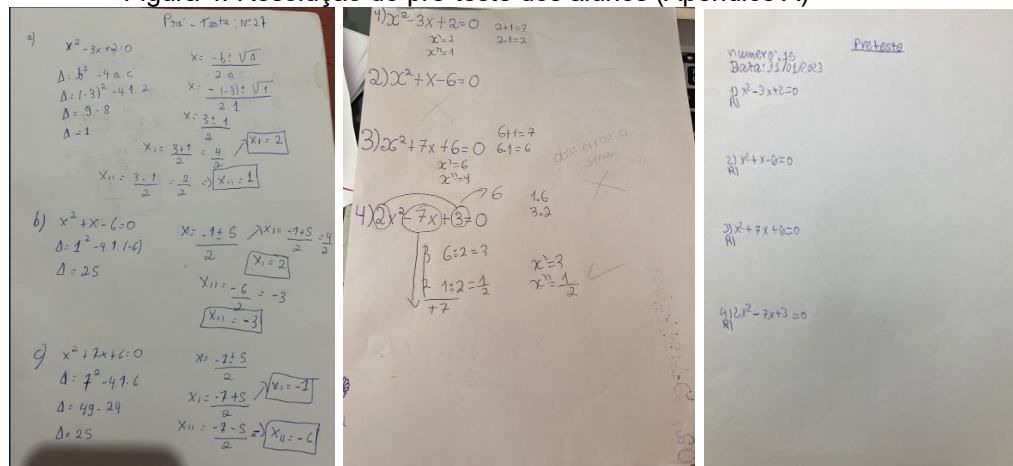 Figura 4: Resolução do pré-teste dos alunos (Apêndice A)
Pré - Teste : Nº 27
a)
x² -3x+2=0
Δ= b² -4a.c
Δ= (-3)² -4.1.2
Δ= 9-8
Δ=1
x= -b ± √Δ / 2a
x= -(-3) ± √1 / 2.1
x= 3±1 / 2
x₁= 3+1 / 2 = 4 / 2 x₁=2
x₁₁= 3-1 / 2 = 2 / 2 => x₁₁=1
b) x² +x-6=0
Δ= 1² -4.1.(-6)
Δ= 25
x= -1±5 / 2
x₁= -1+5 / 2 = 4 / 2
x₁=2
x₁₁= -6 / 2 = -3
x₁₁=-3
c) x² +7x+6=0
Δ= 7² -4.1.6
Δ= 49-24
Δ= 25
x= -7±5 / 2
x₁= -7+5 / 2 x₁=-1
x₁₁= -7-5 / 2 => x₁₁=-6
1) x²-3x+2=0
2+1=3
2.1=2
x'=2
x''=1
2) x²+x-6=0
3) x²+7x+6=0
6+1=7
6.1=6
x'=6
x''=1
obs: errou o
sinal
4) 2x²-7x+3=0
6
1.6
3.2
6:2=3
1:2=1/2
+7
x'=3
x''=1/2
Preteste
numero: 15
Data: 11/01/2023
1) x²-3x+2=0
R)
2) x²+x-6=0
R)
3) x²+7x+6=0
R)
4) 2x²-7x+3=0
R)